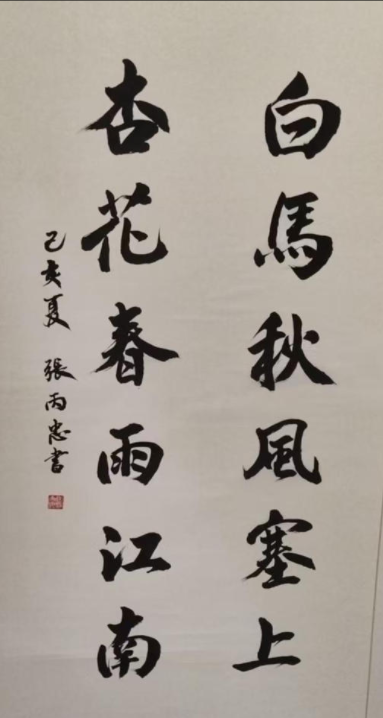 白馬秋風塞上
杏花春雨江南
己亥夏 張丙忠書